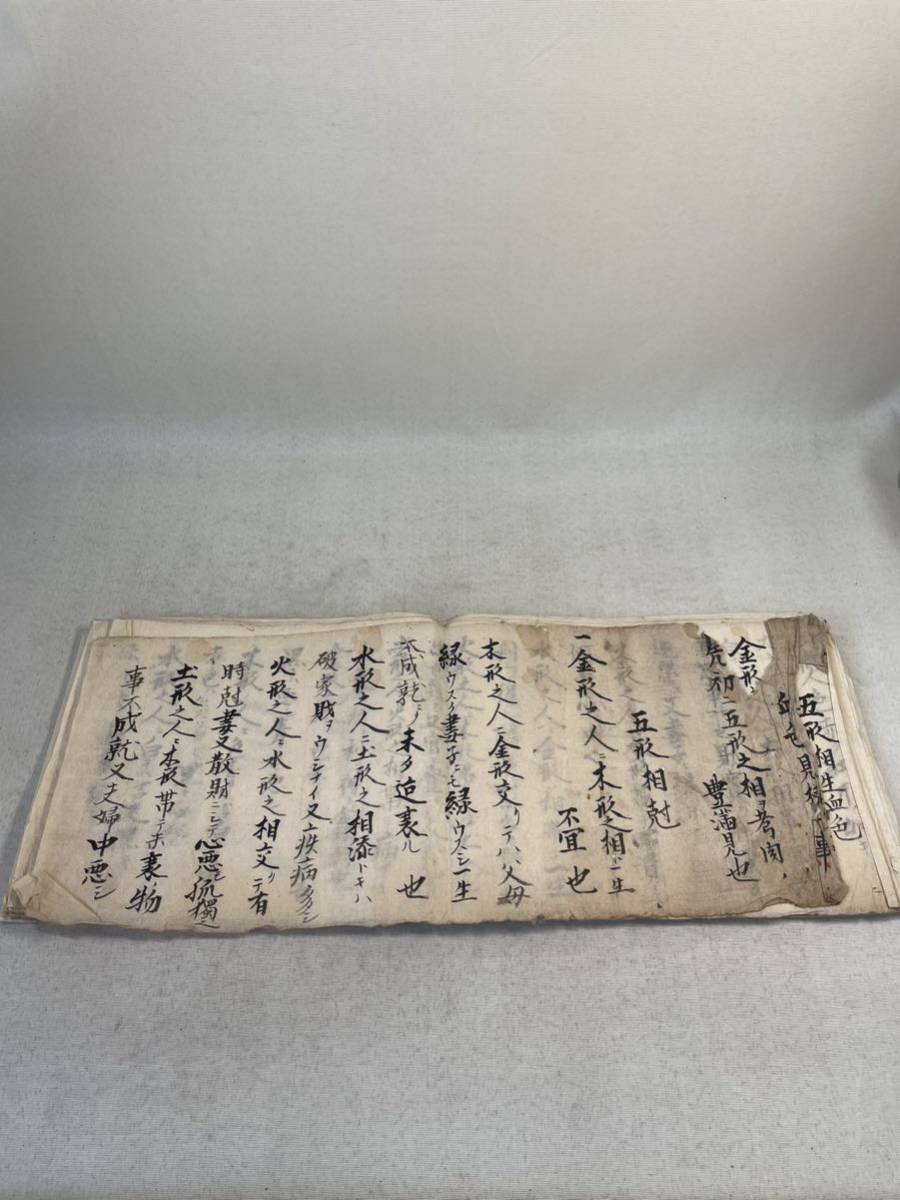 五形相生血色
見様事
金形ニ
先初ニ五形之相ヲ考
豊満見也
五形相尅
一金形之人ニ木形之相ハ一生
不宜也
木形之人ニ金形交リテハ父母
縁ウスク妻子ニモ縁ウスシ一生
不成就シ末タ迠衰ル也
水形之人ニ土形之相添トキハ
破家財ヲウシナイ又ハ疾病多シ
火形之人ニ水形之相交リテ有
時尅妻又散財ニシテ心悪シ孤獨
土形之人ニ木形帯テ衰物
事不成就又夫婦中悪シ